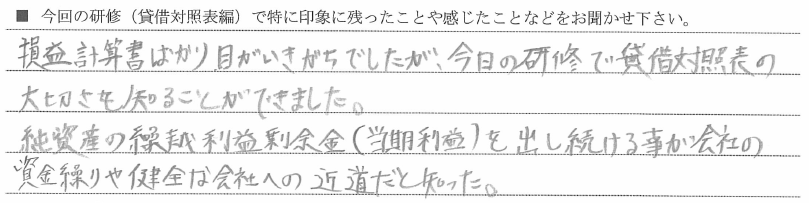 ■ 今回の研修（貸借対照表編）で特に印象に残ったことや感じたことなどをお聞かせ下さい。
損益計算書ばかり目がいきがちでしたが、今日の研修で貸借対照表の
大切さを知ることができました。
純資産の繰越利益剰余金（当期利益）を出し続ける事が会社の
資金繰りや健全な会社への近道だと知った。